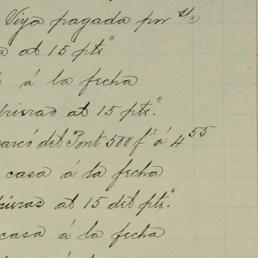 Viza pagada por s/o
a at 15 pts"
á la fecha
brieras at 15 pts".
marcó del Pont 500 f á 4 55
casa á la fecha
brieras at 15 del pts".
casa á la fecha